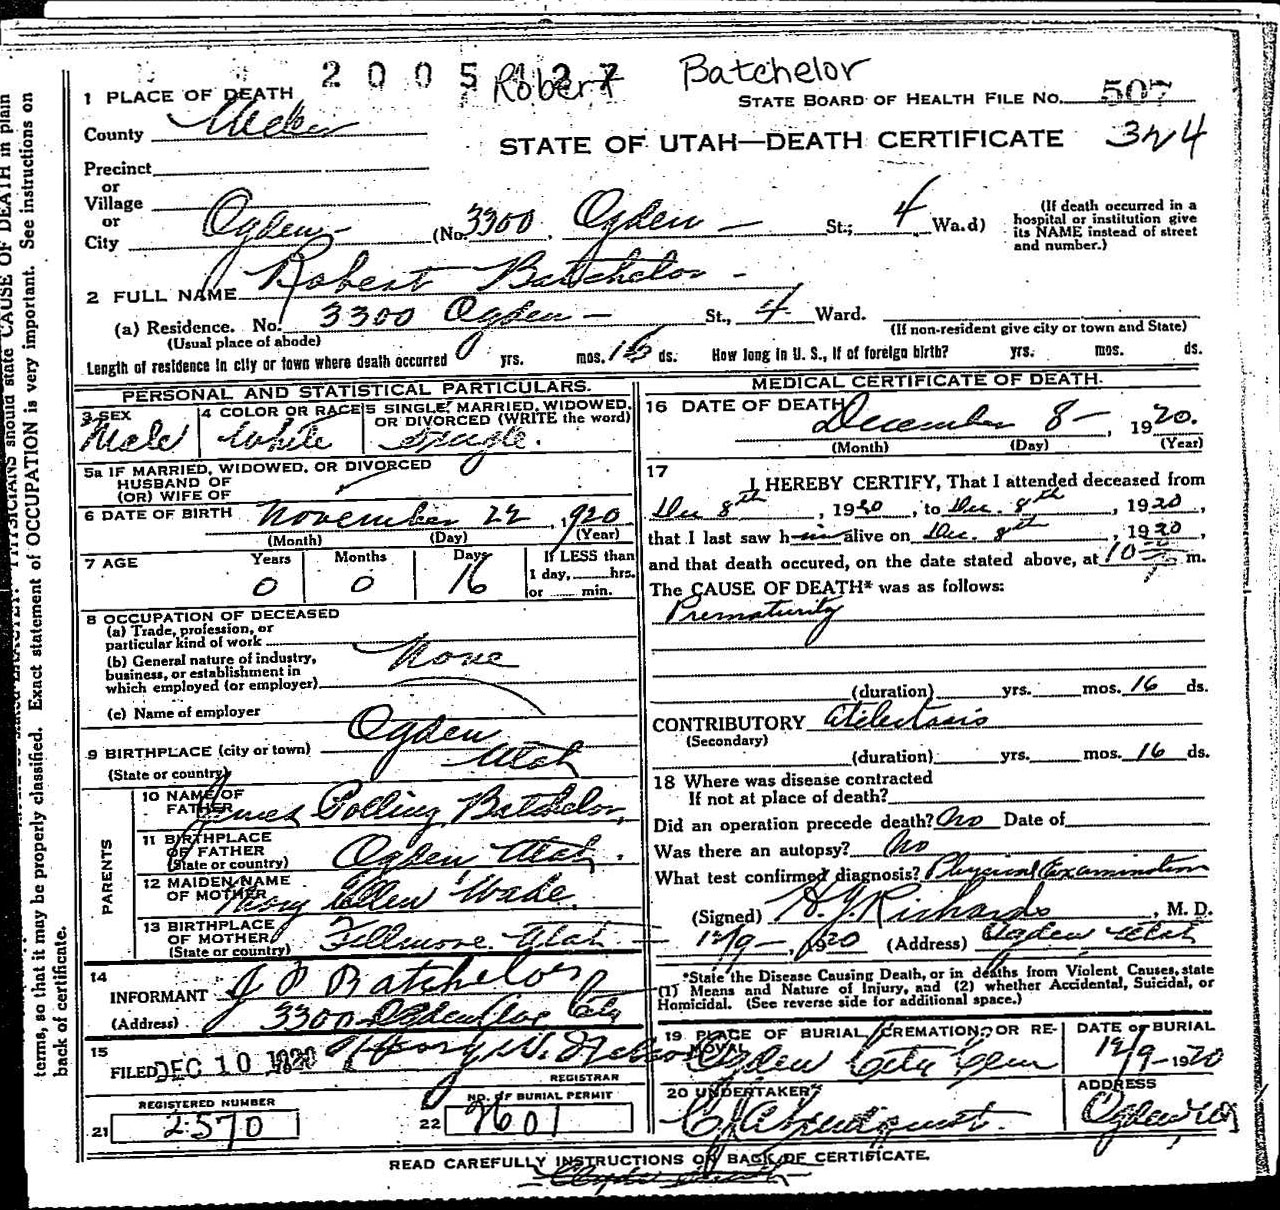 2005127
Robert Batchelor
1 PLACE OF DEATH
STATE BOARD OF HEALTH FILE No. 507
County Weber
STATE OF UTAH—DEATH CERTIFICATE 324
Precinct
or
Village
or
City Ogden (No. 3300 Ogden St.; 4 Wa.d)
(If death occurred in a
hospital or institution give
its NAME instead of street
and number.)
2 FULL NAME Robert Batchelor
(a) Residence. No. 3300 Ogden St., 4 Ward.
(Usual place of abode)
(If non-resident give city or town and State)
Length of residence in city or town where death occurred 0 yrs. mos. 16 ds. How long in U. S., if of foreign birth? yrs. mos. ds.
PERSONAL AND STATISTICAL PARTICULARS.
3 SEX
Male
4 COLOR OR RACE
White
5 SINGLE, MARRIED, WIDOWED,
OR DIVORCED (WRITE the word)
Single.
5a IF MARRIED, WIDOWED, OR DIVORCED
HUSBAND OF
(OR) WIFE OF
6 DATE OF BIRTH November 22, 1920
(Month) (Day) (Year)
7 AGE
Years 0
Months 0
Days 16
If LESS than
1 day, hrs.
or min.
8 OCCUPATION OF DECEASED
(a) Trade, profession, or
particular kind of work None
(b) General nature of industry,
business, or establishment in
which employed (or employer)
(c) Name of employer
9 BIRTHPLACE (city or town) Ogden
(State or country) Utah
PARENTS
10 NAME OF
FATHER James Polling Batchelor
11 BIRTHPLACE
OF FATHER
(State or country) Ogden Utah.
12 MAIDEN NAME
OF MOTHER Mary Ellen Wade.
13 BIRTHPLACE
OF MOTHER
(State or country) Fillmore. Utah
14
INFORMANT J P Batchelor
(Address) 3300 Ogden Ave City
15
FILED DEC 10 1920
REGISTRAR
REGISTERED NUMBER
21 2570
NO. OF BURIAL PERMIT
22 9601
MEDICAL CERTIFICATE OF DEATH.
16 DATE OF DEATH
December 8, 1920.
(Month) (Day) (Year)
17
I HEREBY CERTIFY, That I attended deceased from
Dec 8th, 1920, to Dec. 8th, 1920,
that I last saw him alive on Dec. 8th, 1920
and that death occured, on the date stated above, at 10 m.
The CAUSE OF DEATH* was as follows:
Prematurity
(duration) yrs. mos. 16 ds.
CONTRIBUTORY Atilectasis
(Secondary)
(duration) yrs. mos. 16 ds.
18 Where was disease contracted
If not at place of death?
Did an operation precede death? No Date of
Was there an autopsy? No
What test confirmed diagnosis? Physical Examination
(Signed) H. J. Richards, M. D.
12/9, 1920 (Address) Ogden Utah
*State the Disease Causing Death, or in deaths from Violent Causes, state
(1) Means and Nature of Injury, and (2) whether Accidental, Suicidal, or
Homicidal. (See reverse side for additional space.)
19 PLACE OF BURIAL, CREMATION, OR RE-
MOVAL
Ogden City Cem
DATE OF BURIAL
12/9-1920
20 UNDERTAKER
ADDRESS
Ogden
READ CAREFULLY INSTRUCTIONS ON BACK OF CERTIFICATE.
should state CAUSE OF DEATH in plain
Exact statement of OCCUPATION is very important. See instructions on
terms, so that it may be properly classified.
back of certificate.